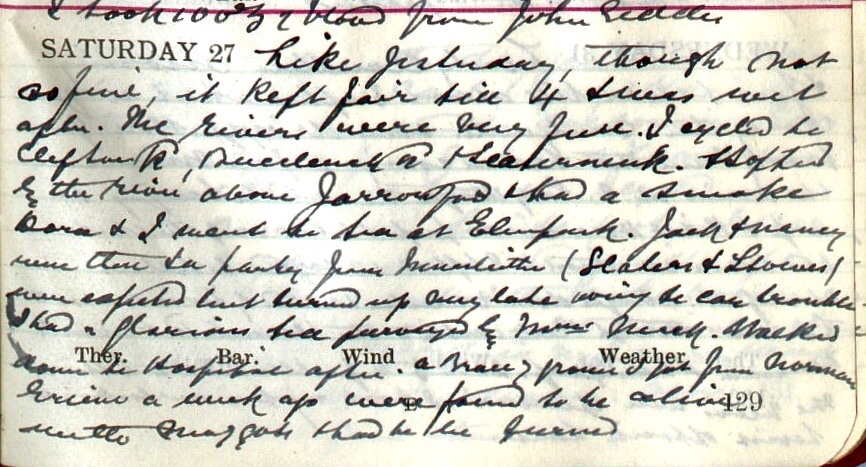 I took 10 oz of blood from John Geddes
SATURDAY 27 Like yesterday, though not
so fine, it kept fair till 4 & was wet
after. The rivers were very full. I cycled to
& stopped
by the river above & had a smoke
Dora & I went to tea at Elmpark. Jack & Nancy
were there & a party from (Slaters & Stowes)
were expected but turned up very late owing to car trouble
& had a glorious tea Walked
Ther. Bar. Wind Weather
down to Hospital after. a Brace of grouse I got from Norman
Grieve a week ago were found to be alive
E 129
with maggots & had to be burned